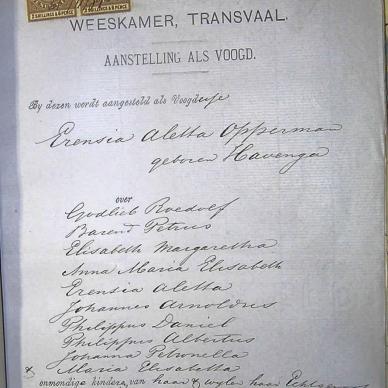 2 SHILLINGS & 6 PENCE 2 SHILLINGS & 6 PENCE
WEESKAMER, TRANSVAAL.
AANSTELLING ALS VOOGD.
By dezen wordt aangesteld als Voogdesse
Erensia Aletta Opperman
geboren Havenga
over
Godlieb Roedolf
Barend Petrus
Elisabeth Margaretha
Anna Maria Elisabeth
Erensia Aletta
Johannes Arnoldus
Philippus Daniel
Philippus Albertus
Johanna Petronella
& Maria Elisabetta
onmondige kinderen van haar & wylen haar Echtgenoot